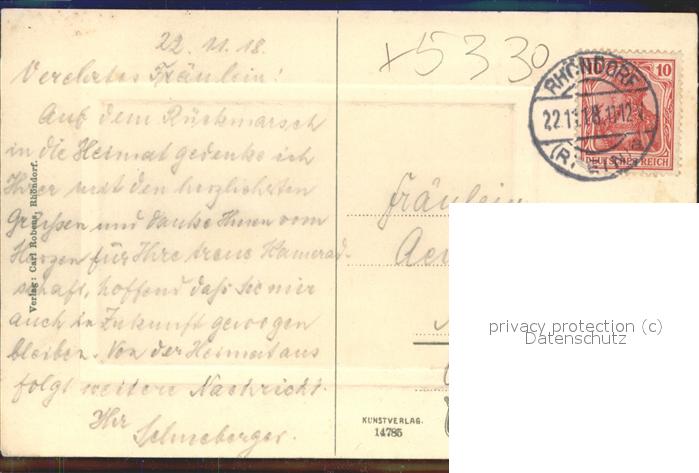 22.11.18.
Verehrtes Fräulein!
Auf dem Rückmarsch
in die Heimat gedenke ich
Ihrer mit den herzlichsten
Grüssen und danke Ihnen vom
Herzen für Ihre treue Kamerad-
schaft, hoffend dass Sie mir
auch in Zukunft gewogen
bleiben. Von der Heimat aus
folgt weitere Nachricht.
Ihr
Schneberger.
Verlag: Carl Robens, Rhöndorf.
+5330
RHÖNDORF
22.11.18.11-12
10
DEUTSCHES REICH
Fräulein
privacy protection (c)
Datenschutz
KUNSTVERLAG.
14785